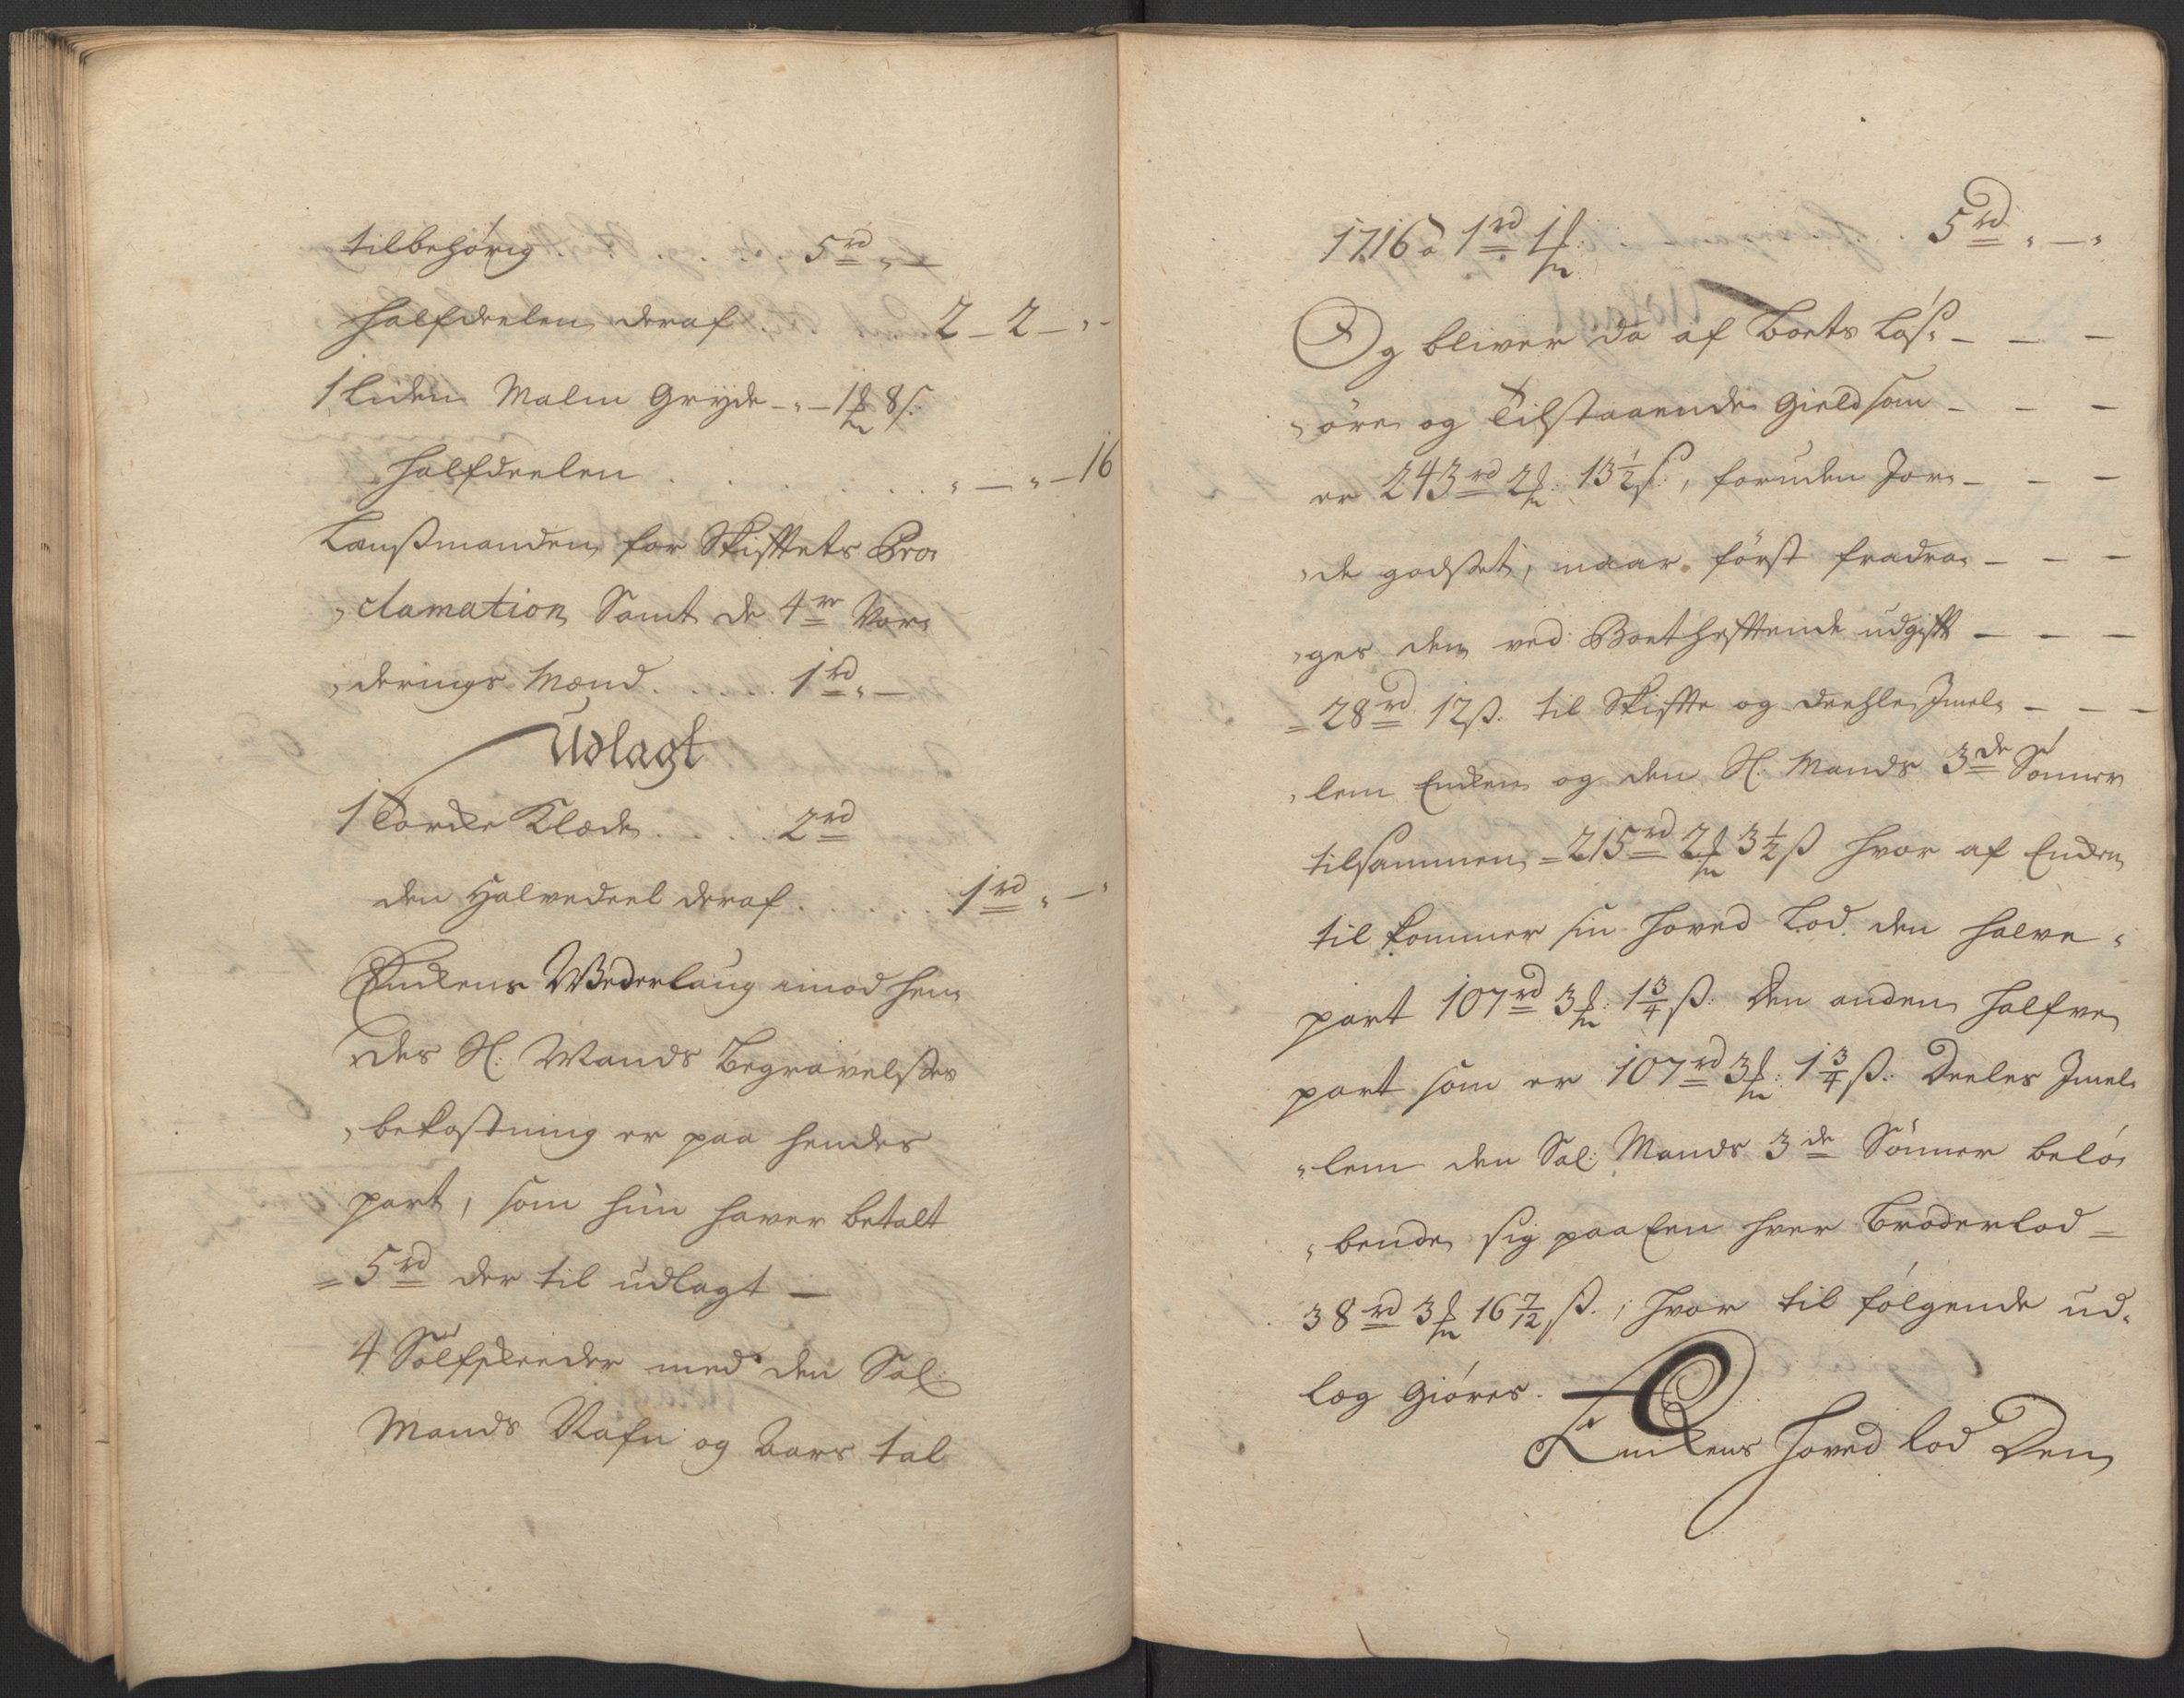 tilbehørig . . . . 5 rd „ —
halfdeelen deraf . 2 – 2 – „ -
1 liden Malm Gryde – „ – 1 ℳ 8 s:
halfdeelen . . . . . . . „ — „ – 16
Lænßmanden for Skifttets Pro„
„clamation Samt de 4re Vor„
„derings Mænd . . . . 1 rd „ —
Udlagt
1 Torcke Klæde . . . . 2 rd
den Halvedeel deraf . . . . . . 1 rd „ — „
Enckens Wederlaug imod hen„
„des Sl: Mands Begravelses
„bekostning er paa hendes
part, som hun haver betalt
= 5 rd der til udlagt —
4 Sölfskeeder med den Sal:
Mands Nafn og Aars tal
1716 a 1 rd 1 ℳ: . . . . 5 rd „ — „
Og bliver da af Boets Løß„ – – –
„öre og Tilstaaende Gield som – – –
er 243 rd 2 ℳ: 13 1/2 ß:, foruden Jor„ – – –
„de godset, naar først fradra„ – – –
„ges den ved Boet hefttende udgifft – – –
= 28 rd 12 ß. til Skiftte og deehle Imel„ – – –
„lem Encken og den Sl: Mands 3de Sönner
tilsammen = 215 rd 2 ℳ 3 1/2 ß hvor af Encken
til kommer sin Hoved Lod den halve „
part 107 rd 3 ℳ: 1 3/4 ß: Den anden halfve
part som er 107 rd 3 ℳ: 1 3/4 ß: Deeles Imel„
„lem den Sal: Mands 3de Sönner belö„
„bende sig paa Een hver Broderlod =
38 rd 3 ℳ 16 7/12 ß. ; hvor til følgende ud„
læg Giöres.
Enckens Hoved lod Den